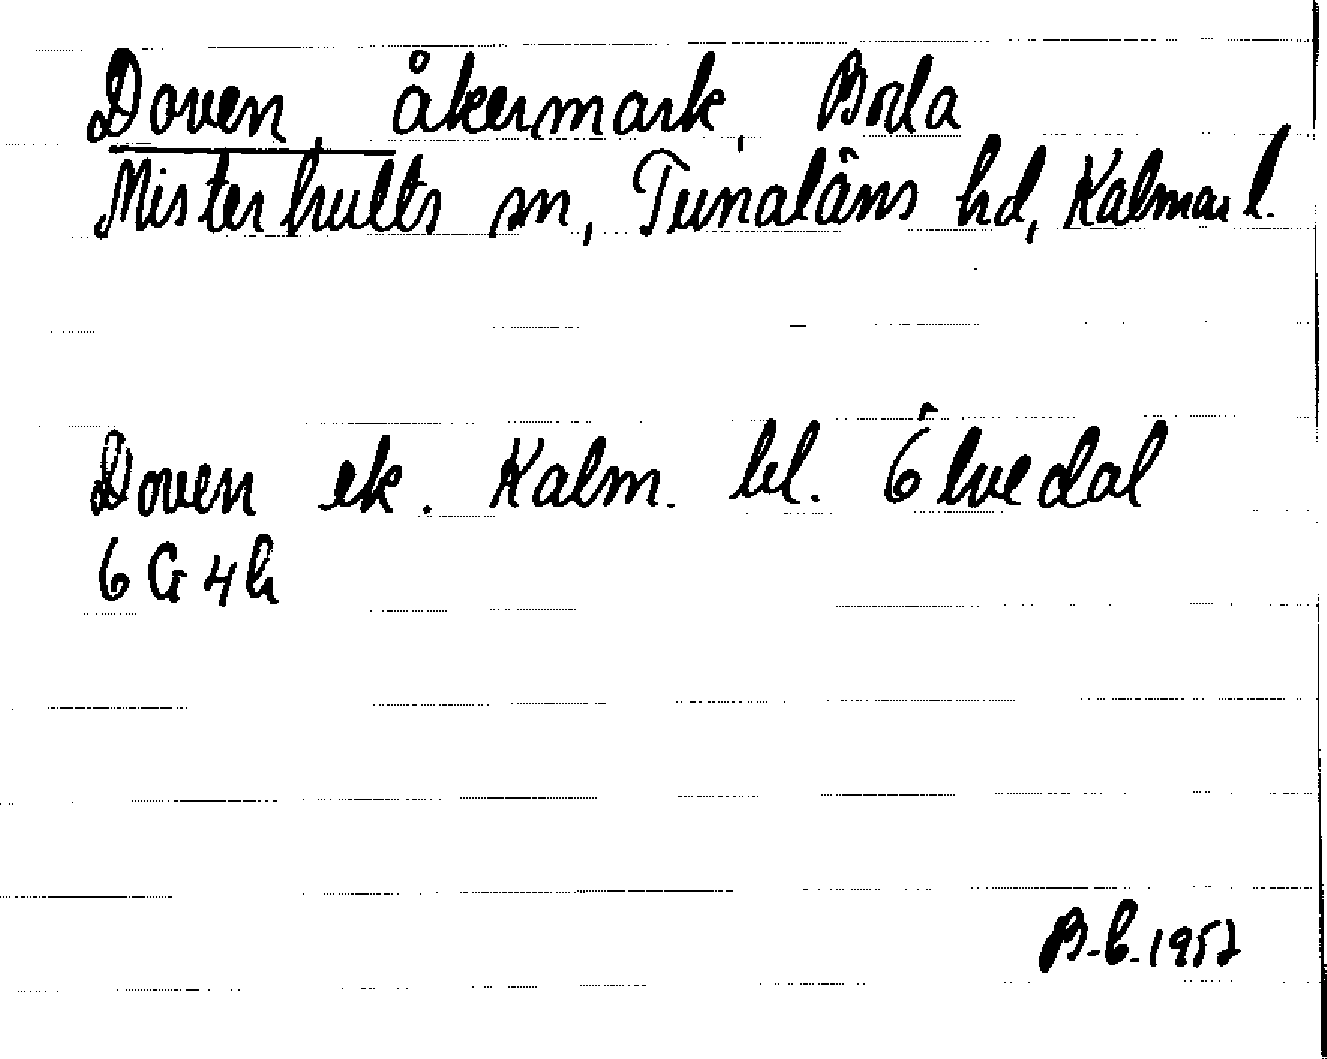 Doven, åkermark, Boda
Misterhults sn, Tunaläns hd, Kalmar l.
Doven ek. Kalm. bl. Ölvedal
6 G 4 h
B-b. 1957